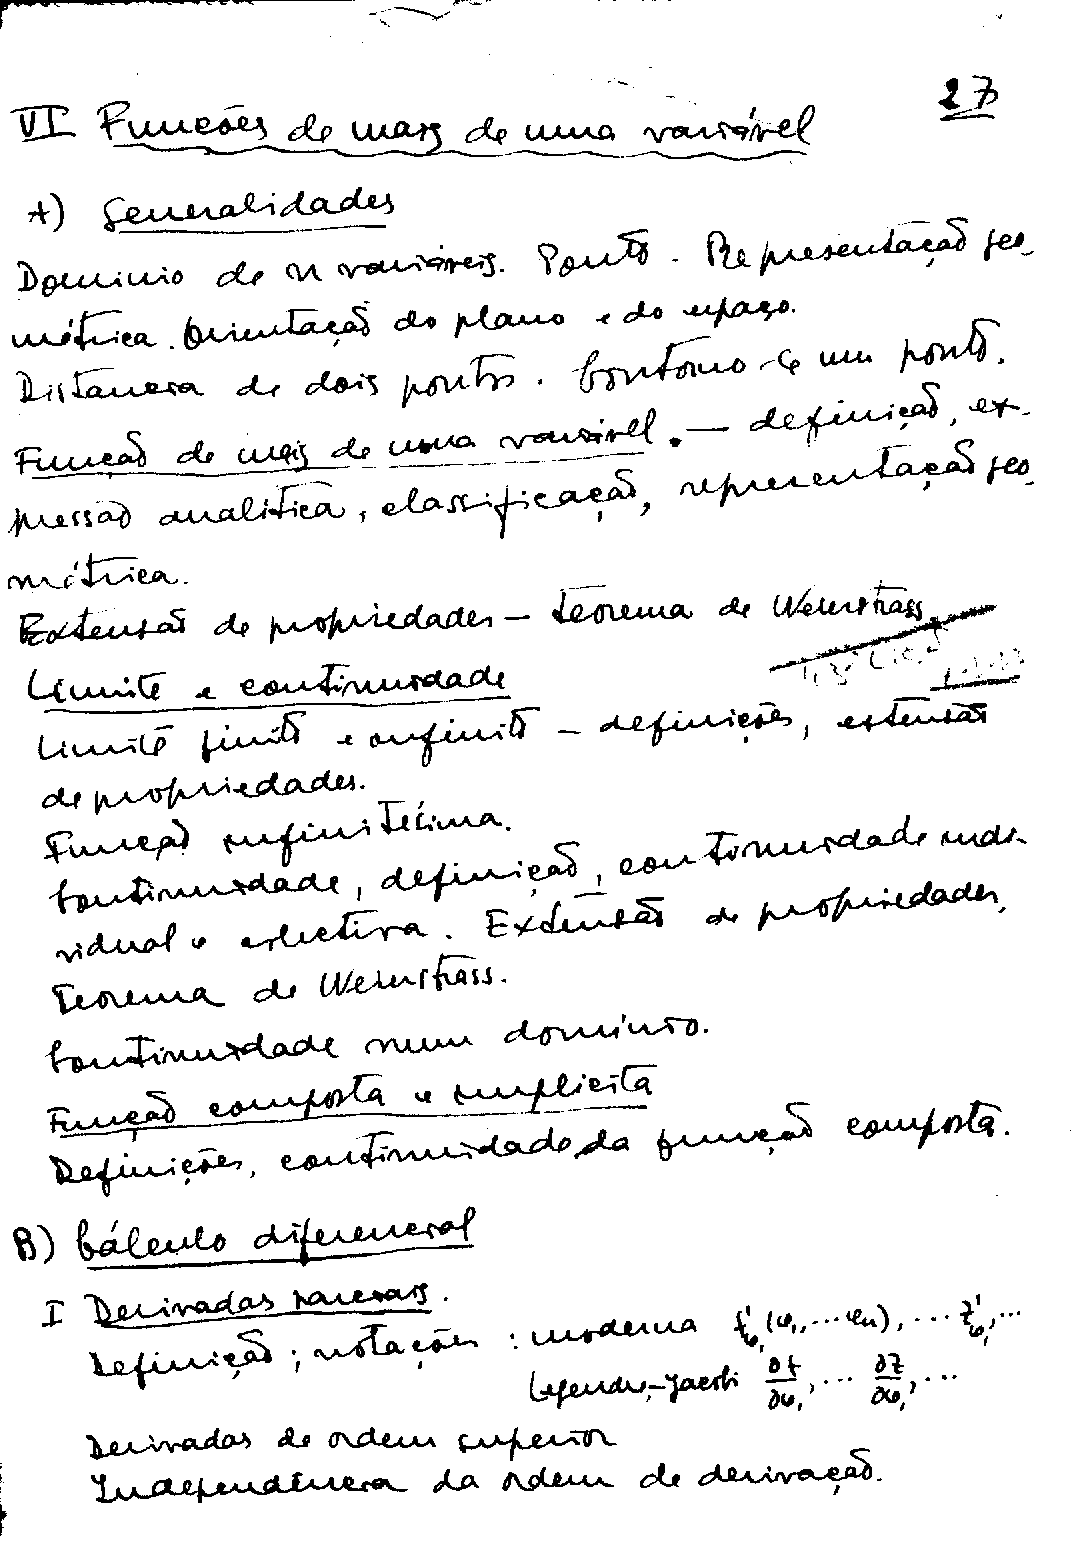 27
VI Funcões de mais de uma variável
A) Generalidades
Dominio de n variáveis. Ponto. Representação geo-
métrica. Orientação do plano e do espaço.
Distancia de dois pontos. Contorno de um ponto.
Função de mais de uma variável. — definição, ex-
pressão analitica, classificação, representação geo-
métrica.
Extensão de propriedades — Teorema de Weierstrass
Limite e continuidade
Limite finito e infinito — definições, extensão
de propriedades.
Função infinitécima.
Continuidade, definição, continuidade indi-
vidual e colectiva. Extensão de propriedades,
Teorema de Weierstrass.
Continuidade num dominio.
Função composta e implicita
Definições, continuidade da função composta.
B) Cálculo diferencial
I Derivadas parciais.
Definição; notações: moderna f'x₁(x₁,...xn), ... z'x₁, ...
Legendre-Jacobi ∂f/∂x₁, ... ∂z/∂x₁, ...
Derivadas de ordem superior
Independência da ordem de derivação.